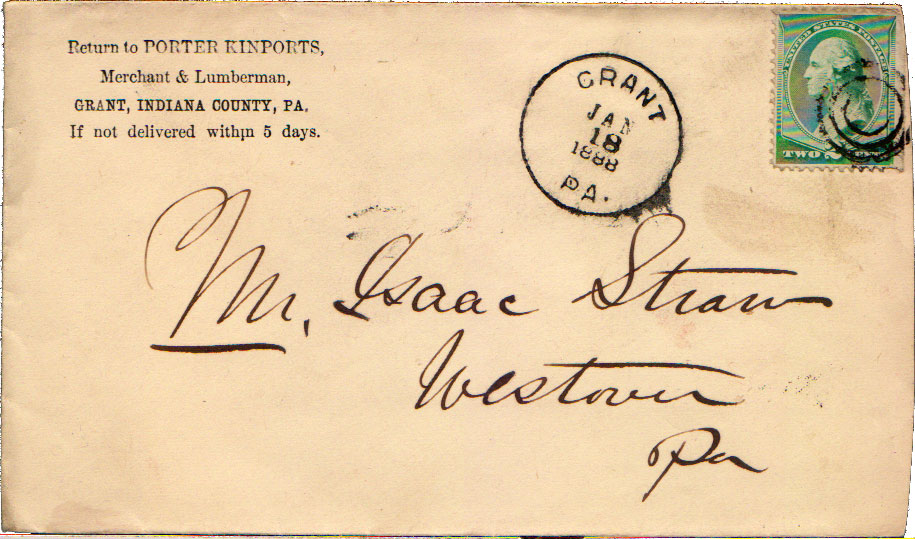 Return to PORTER KINPORTS,
Merchant & Lumberman,
GRANT, INDIANA COUNTY, PA.
If not delivered within 5 days.
GRANT
JAN
18
1888
PA.
UNITED STATES POSTAGE
TWO 2
Mr. Isaac Straw
Westover
Pa